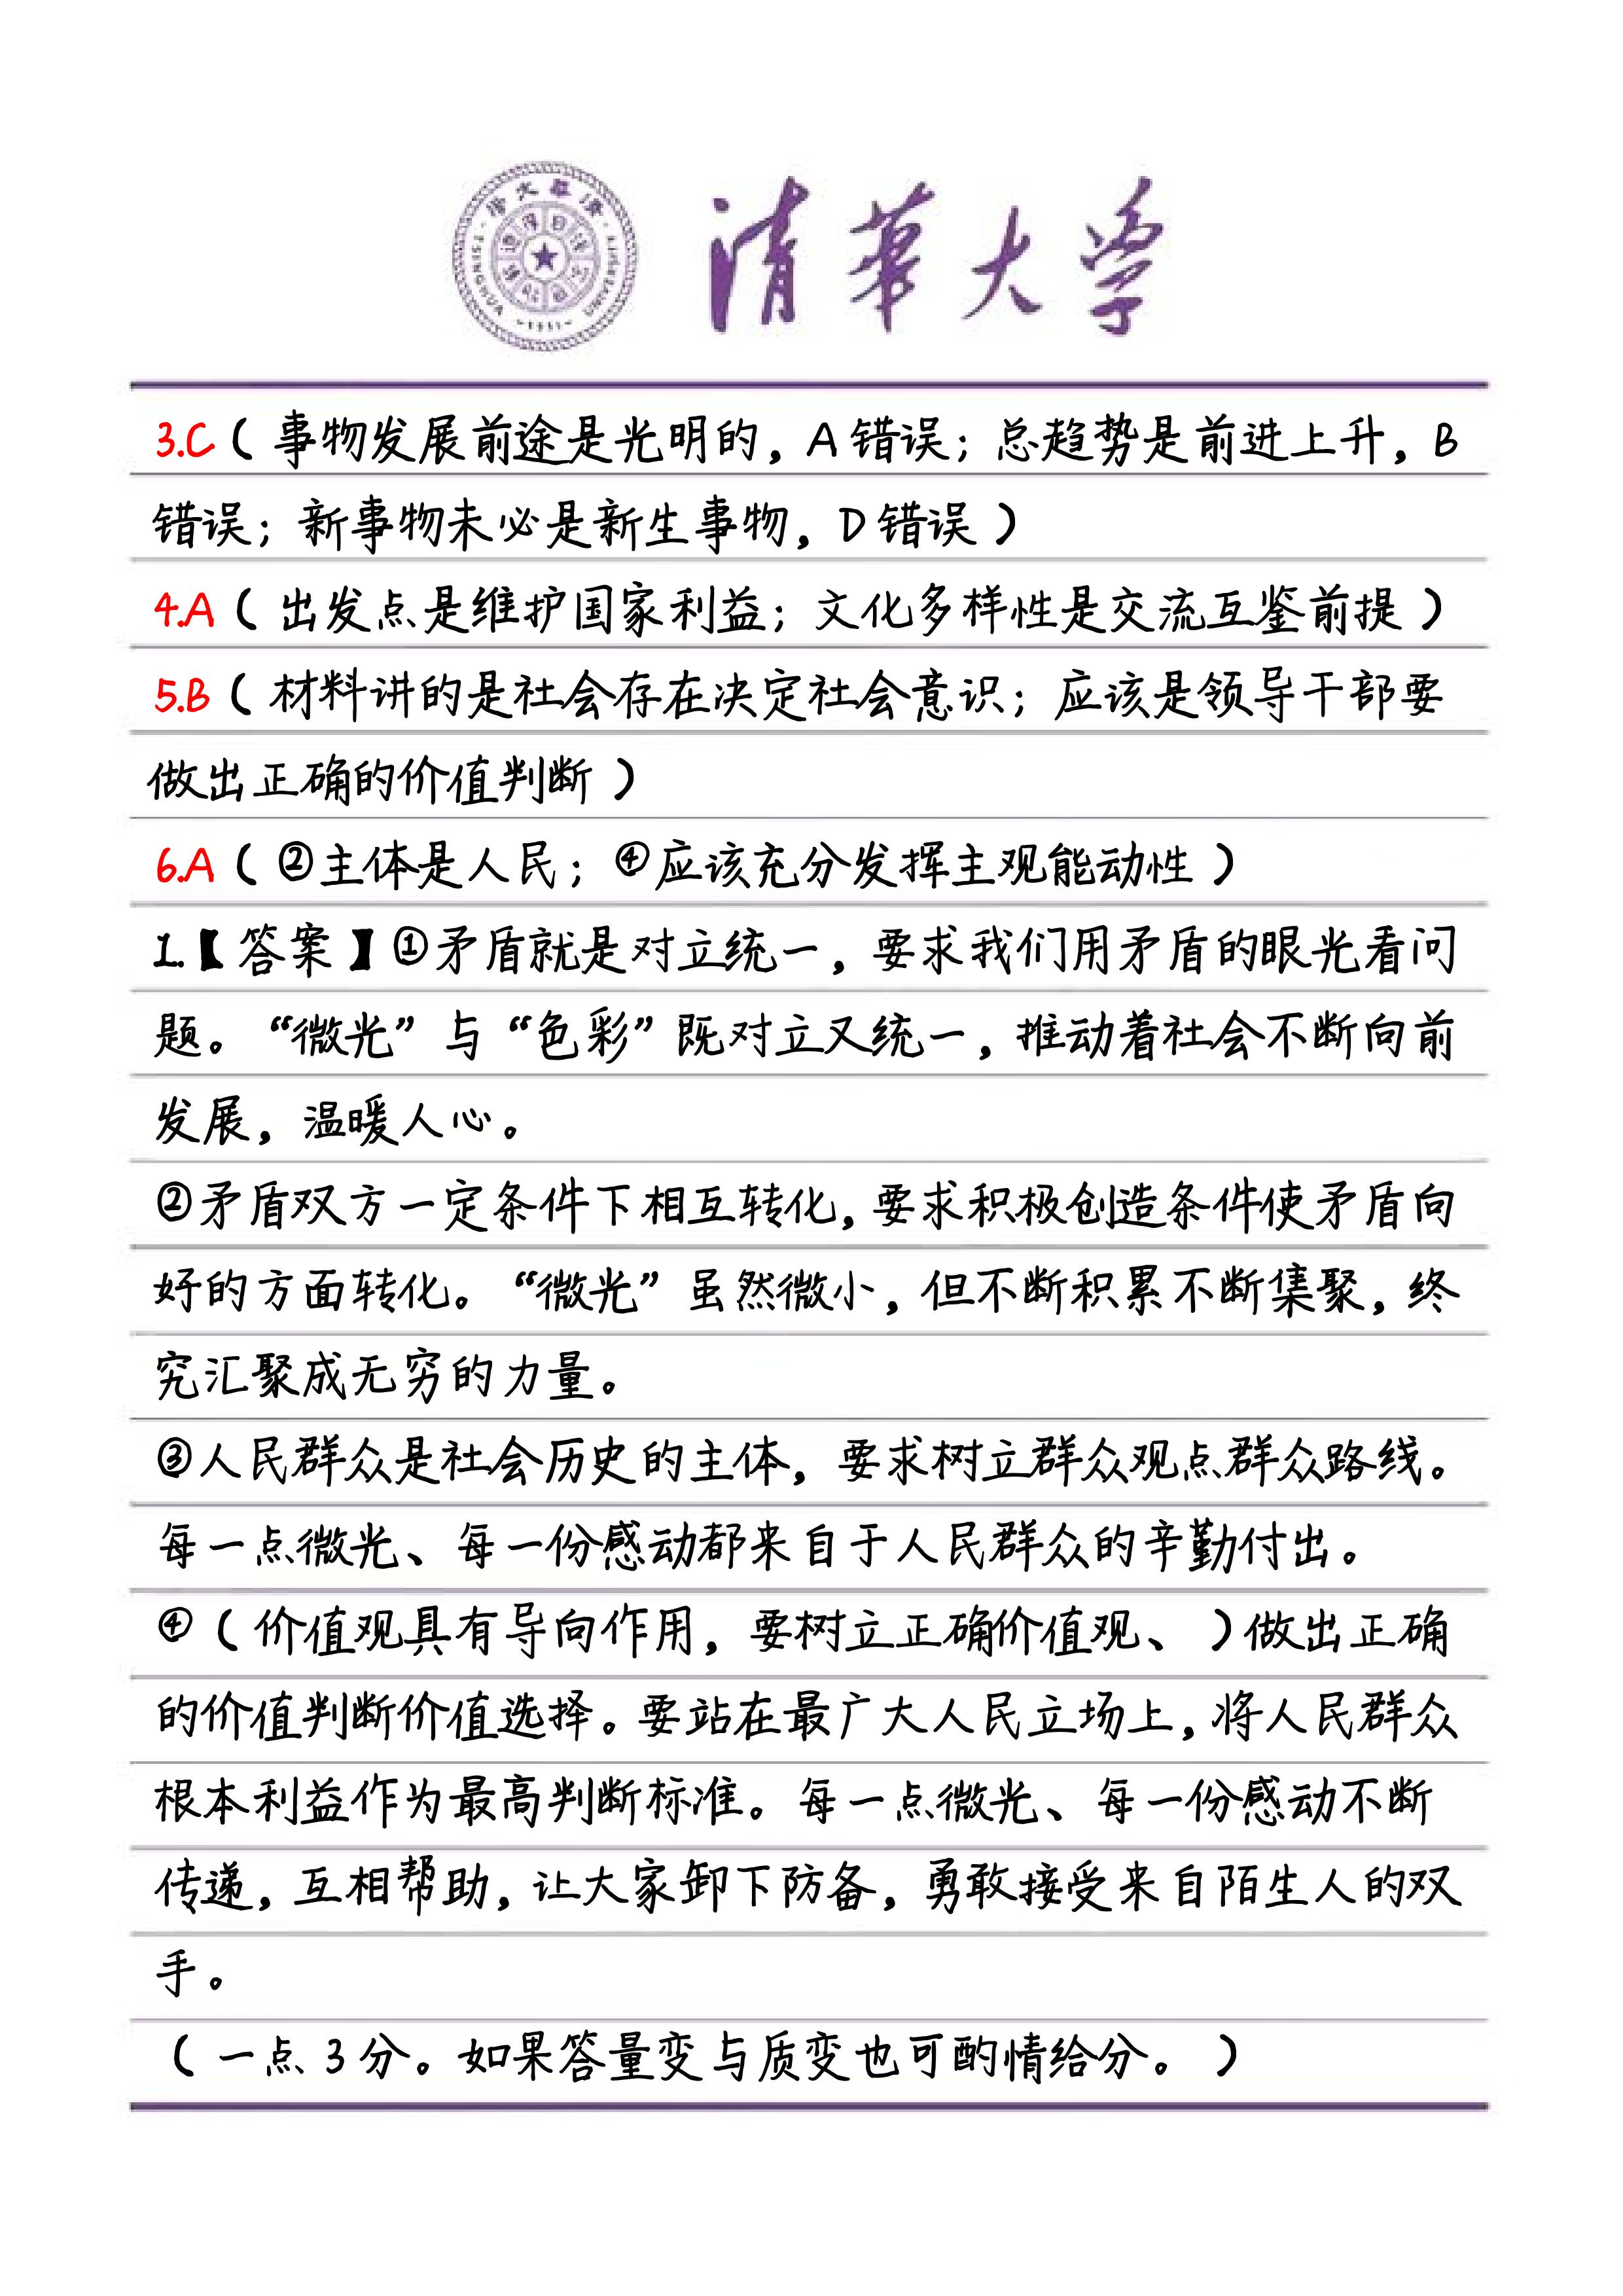 清华大学
TSINGHUA UNIVERSITY
-1911-
3.C（事物发展前途是光明的，A错误；总趋势是前进上升，B
错误；新事物未必是新生事物，D错误）
4.A（出发点是维护国家利益；文化多样性是交流互鉴前提）
5.B（材料讲的是社会存在决定社会意识；应该是领导干部要
做出正确的价值判断）
6.A（②主体是人民；④应该充分发挥主观能动性）
1.【答案】①矛盾就是对立统一，要求我们用矛盾的眼光看问
题。“微光”与“色彩”既对立又统一，推动着社会不断向前
发展，温暖人心。
②矛盾双方一定条件下相互转化，要求积极创造条件使矛盾向
好的方面转化。“微光”虽然微小，但不断积累不断集聚，终
究汇聚成无穷的力量。
③人民群众是社会历史的主体，要求树立群众观点群众路线。
每一点微光、每一份感动都来自于人民群众的辛勤付出。
④（价值观具有导向作用，要树立正确价值观、）做出正确
的价值判断价值选择。要站在最广大人民立场上，将人民群众
根本利益作为最高判断标准。每一点微光、每一份感动不断
传递，互相帮助，让大家卸下防备，勇敢接受来自陌生人的双
手。
（一点3分。如果答量变与质变也可酌情给分。）